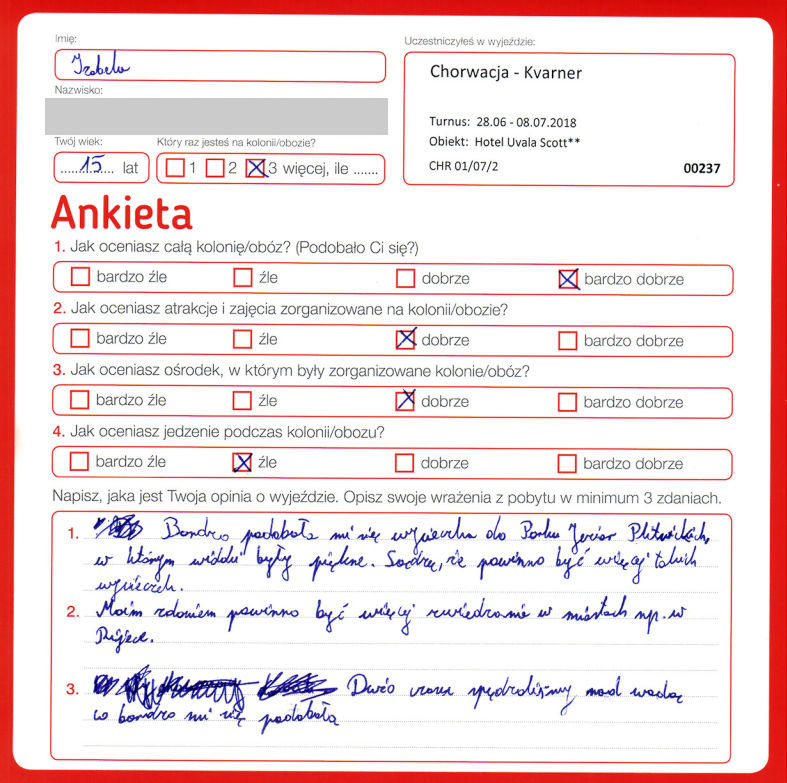 Imię:
Izabela
Nazwisko:
Twój wiek:
Który raz jesteś na kolonii/obozie?
15 lat
1 2 3 więcej, ile .......
Uczestniczyłeś w wyjeździe:
Chorwacja - Kvarner
Turnus: 28.06 - 08.07.2018
Obiekt: Hotel Uvala Scott**
CHR 01/07/2 00237
Ankieta
1. Jak oceniasz całą kolonię/obóz? (Podobało Ci się?)
bardzo źle źle dobrze bardzo dobrze
2. Jak oceniasz atrakcje i zajęcia zorganizowane na kolonii/obozie?
bardzo źle źle dobrze bardzo dobrze
3. Jak oceniasz ośrodek, w którym były zorganizowane kolonie/obóz?
bardzo źle źle dobrze bardzo dobrze
4. Jak oceniasz jedzenie podczas kolonii/obozu?
bardzo źle źle dobrze bardzo dobrze
Napisz, jaka jest Twoja opinia o wyjeździe. Opisz swoje wrażenia z pobytu w minimum 3 zdaniach.
1. Bardzo podobała mi się wycieczka do Parku Jezior Plitwickich,
w którym widoki były piękne. Sądzę, że powinno być więcej takich
wycieczek.
2. Moim zdaniem powinno być więcej zwiedzania w miastach np. w
Rijece.
3. Dużo czasu spędzaliśmy nad wodą
co bardzo mi się podobało